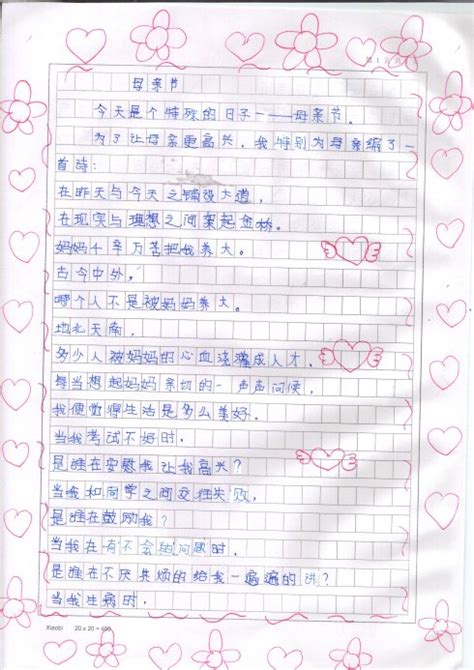 母亲节
今天是个特殊的日子——母亲节。
为了让母亲更高兴，我特别为母亲编了一
首诗：
在昨天与今天之铺设大道，
在现实与理想之间架起金桥。
妈妈千辛万苦把我养大。
古今中外，
哪个人不是被妈妈养大。
地北天南，
多少人被妈妈的心血浇灌成人才。
每当想起妈妈亲切的一声声问候，
我便觉得生活是多么美好。
当我考试不好时，
是谁在安慰我让我高兴？
当我和同学之间交往失败，
是谁在鼓励我？
当我在有不会的问题时，
是谁在不厌其烦的给我一遍遍的讲？
当我生病时，
Xiaobi 20 x 20 = 400